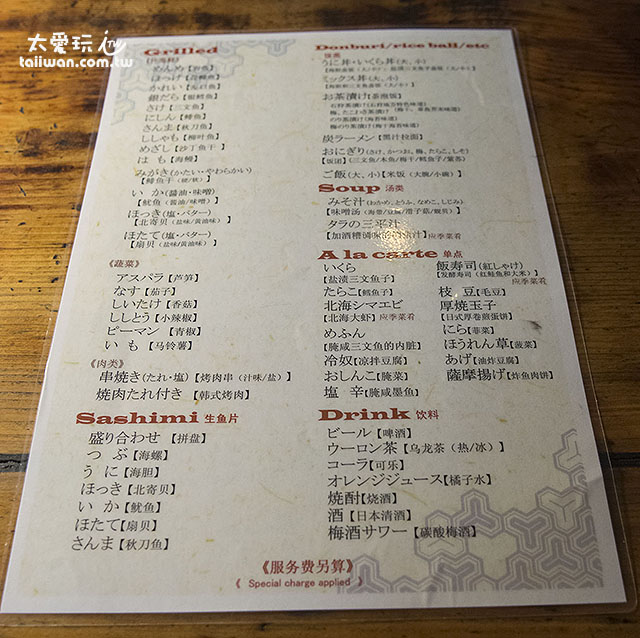 太愛玩
taiiwan.com.tw
Grilled
《海鲜》
めんめ【喜鱼】
ほっけ【花鲫鱼】
かれい【灰鲽鱼】
銀だら【银鳕鱼】
さけ【三文鱼】
にしん【鲱鱼】
さんま【秋刀鱼】
ししゃも【柳叶鱼】
めざし【沙丁鱼干】
はも【海鳗】
みがき(かたい・やわらかい)
【鲱鱼干(硬/软)】
いか(醤油・味噌)
【鱿鱼(酱油/味噌)】
ほっき(塩・バター)
【北寄贝(盐味/黄油味)】
ほたて(塩・バター)
【扇贝(盐味/黄油味)】
《蔬菜》
アスパラ【芦笋】
なす【茄子】
しいたけ【香菇】
ししとう【小辣椒】
ピーマン【青椒】
いも【马铃薯】
《肉类》
串焼き(たれ・塩)【烤肉串(汁味/盐)】
焼肉たれ付き【韩式烤肉】
Sashimi 生鱼片
盛り合わせ【拼盘】
つぶ【海螺】
うに【海胆】
ほっき【北寄贝】
いか【鱿鱼】
ほたて【扇贝】
さんま【秋刀鱼】
Donburi/rice ball/etc
饭类
うに丼・いくら丼(大、小)
ミックス丼(大、小)
【海胆和三文鱼子盖饭(大/小)】
お茶漬け【茶泡饭】
のり茶漬け(海苔味道)
炭ラーメン【黑汁拉面】
おにぎり(さけ、かつお、梅、たらこ、しそ)
【饭团】(三文鱼/木鱼/梅干/鳕鱼子/紫苏)
ご飯(大、小)【米饭(大碗/小碗)】
Soup 汤类
みそ汁(わかめ、とうふ、なめこ、しじみ)
【味噌汤(海带/豆腐/滑子菇/蚬贝)】
タラの三平汁
【加酒糟 应季菜肴
A la carte 单点
いくら
【盐渍三文鱼子】
たらこ【鳕鱼子】
北海シマエビ
【北海大虾】应季菜肴
めふん
【腌咸三文鱼的内脏】
冷奴【凉拌豆腐】
おしんこ【腌菜】
塩辛【腌咸墨鱼】
飯寿司(紅しゃけ)
【发酵寿司(红鲑鱼和大米)】
应季菜肴
枝豆【毛豆】
厚焼玉子
【日式厚卷煎蛋饼】
にら【韭菜】
ほうれん草【菠菜】
あげ【油炸豆腐】
薩摩揚げ【炸鱼肉饼】
Drink 饮料
ビール【啤酒】
ウーロン茶【乌龙茶(热/冰)】
コーラ【可乐】
オレンジジュース【橘子水】
焼酎【烧酒】
酒【日本清酒】
梅酒サワー【碳酸梅酒】
《服务费另算》
《 Special charge applied 》